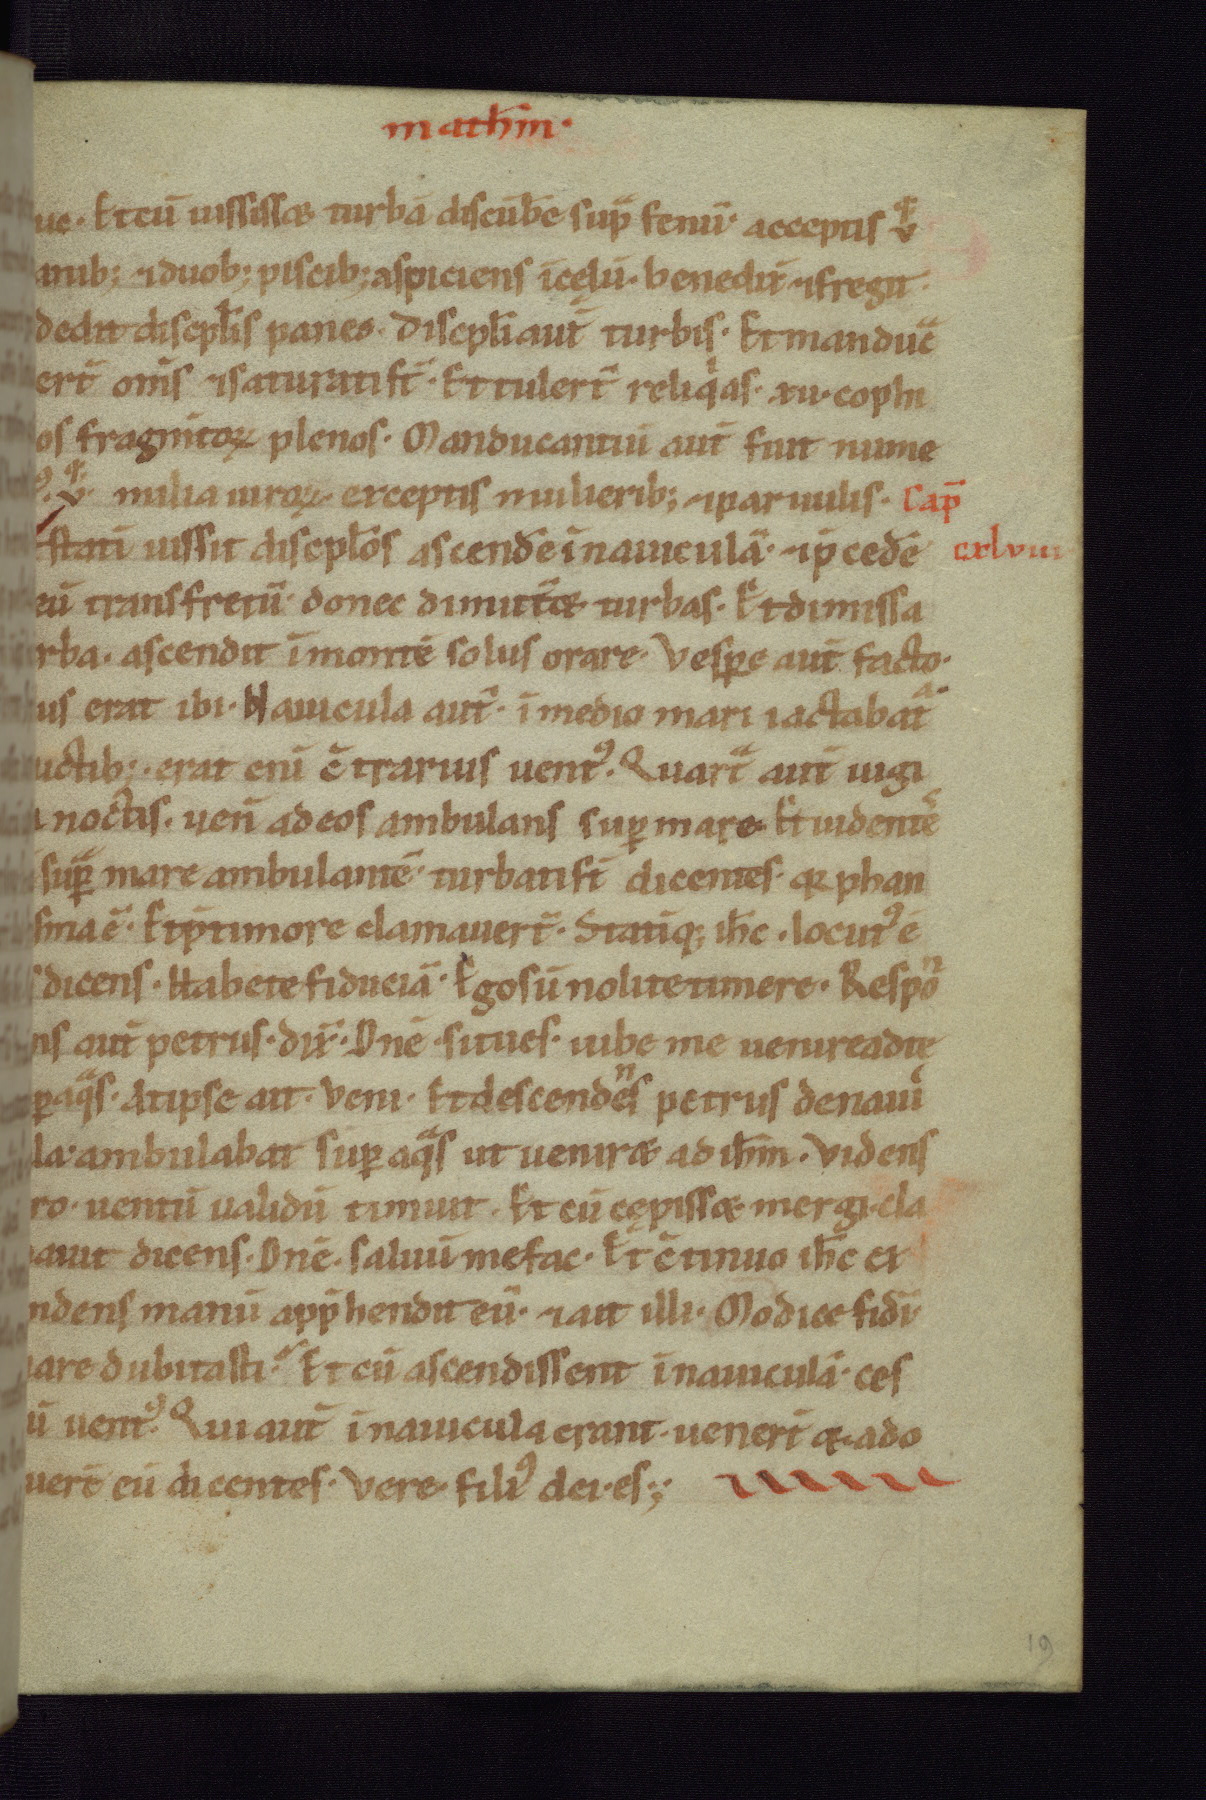 mathm̄·
ue· Et cū iussisset turbā discūbe̅ sup̄ fenū· acceptis v̄
anib; ⁊ duob; piscib; aspiciens ī cęlū· benedix̄ ⁊ fregit·
dedit discipl̄is panes· Discipl̄i aut̄ turbis· Et manduc̄
ert̄ om̄s ⁊ saturati st̄· Et tulert̄ reliq̄as· xii· cophi
os fragm̄toꝝ plenos· Manducantiū aut̄ fuit nume
v̄· milia uiroꝝ exceptis mulierib; ⁊ paruulis· Cap̄
statī iussit discipl̄os ascende̅ ī nauiculā· ⁊ p̄cede̅ cxlviii
eū trans fretū· donec dimittet̄ turbas· Et dimissa
rba· ascendit ī monte̅ solus orare· Vespe̅ aut̄ facto·
us erat ibi· Nauicula aut̄· ī medio mari iactabat̄
uctib;· erat eni̅ c̄trarius uent᾽· Quart̄ aut̄ uigi
a noctis· uen̄ ad eos ambulans sup mare· Et uidente̅
sup̄ mare ambulante̅· turbati st̄ dicentes· q̄ phan
sma ē· Et p̄ timore clamauert̄· Statīq; ih̄c· locut᾽ ē
s dicens· Habete fiduciā· Ego sū nolite timere· Respōn
ns aut̄ petrus· dix̄· Dn̄e si tu es· iube me uenire ad te
p aq̄s· At ipse ait· Veni· Et descende̅ns petrus de naui
la· ambulabat sup aq̄s ut ueniret ad ih̄m· Videns
ro· uentū ualidū timuit· Et cū cępisset mergi· cla
auit dicens· Dn̄e· saluū me fac· Et c̄tinuo ih̄c ex
ndens manū app̄hendit eū· ⁊ ait illi· Modice fidi·
uare dubitasti· Et cū ascendissent ī nauiculā· ces
ū uent᾽· Qui aut̄ ī nauicula erant· uenert̄ et· ado
uert̄ eū dicentes· Vere· fili᾽ dei· es·;
19